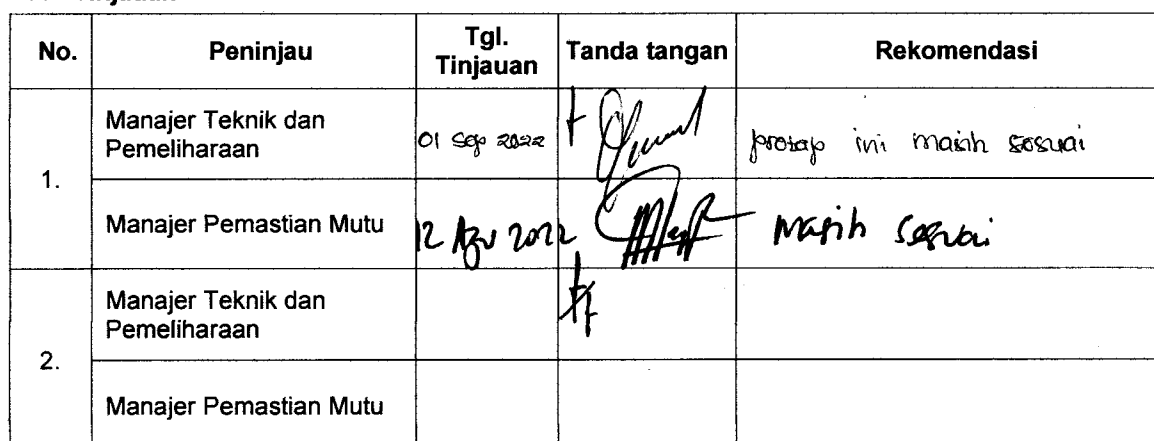 No. Peninjau Tgl. Tinjauan Tanda tangan Rekomendasi
1.
Manajer Teknik dan Pemeliharaan 01 Sep 2022 protap ini masih sesuai
Manajer Pemastian Mutu 12 Agu 2022 Masih sesuai
2.
Manajer Teknik dan Pemeliharaan
Manajer Pemastian Mutu